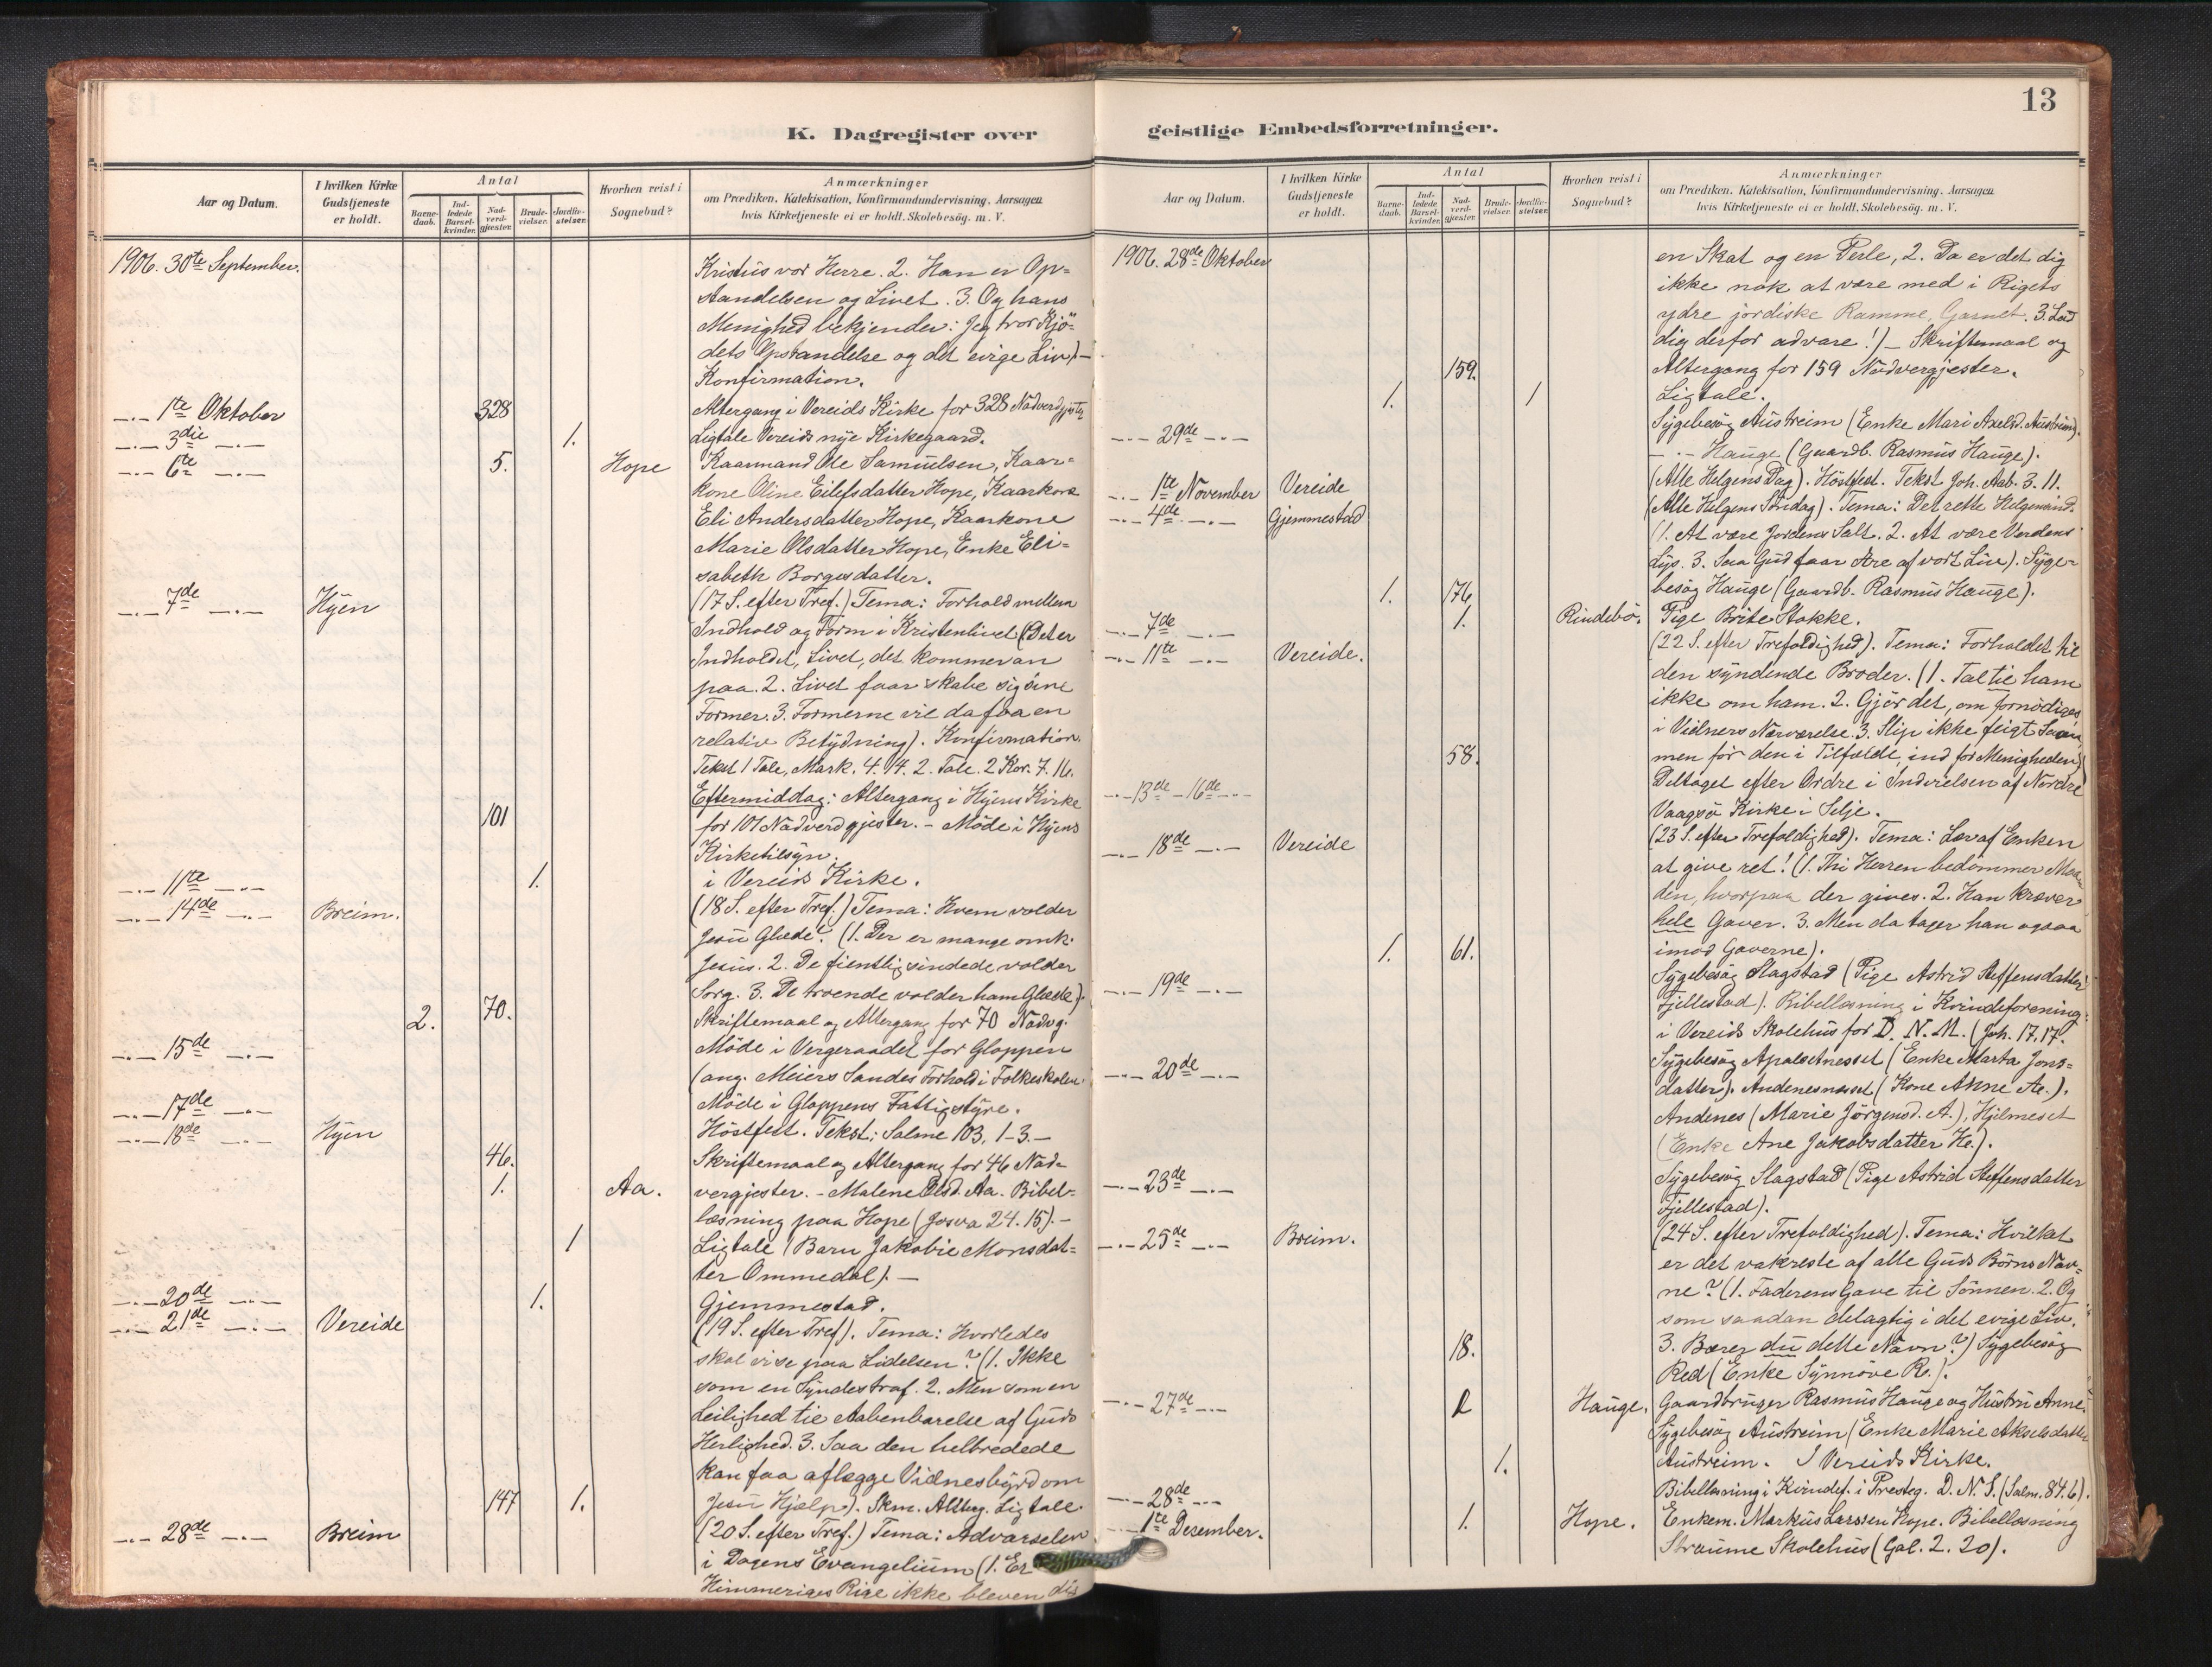 13
K. Dagregister over
geistlige Embedsforretninger.
Aar og Datum.
I hvilken Kirke Gudstjeneste er holdt.
Antal
Barne-daab.
Ind-ledede Barsel-kvinder.
Nad-verd-gjæster.
Brude-vielser.
Jordfæ-stelser.
Hvorhen reist i Sognebud?
Anmærkninger
om Prædiken, Katekisation, Konfirmandundervisning. Aarsagen
hvis Kirketjeneste ei er holdt. Skolebesøg. m. V.
1906. 30te September.
Kristus vor Herre. 2. Han er Op-
standelsen og Livet. 3. Og hans
Menighed bekjender: Jeg tror Kjö-
dets Opstandelse og det evige Liv). -
Konfirmation.
-.- 1te Oktober 328 Altergang i Vereids Kirke for 328 Nadverdgjester
-.- 3die -.- 1. Ligtale Vereids nye Kirkegaard.
-.- 6te -.- 5. Hope Kaarmand Ole Samuelsen, Kaar-
kone Oline Eilefsdatter Hope, Kaarkone
Eli Andersdatter Hope, Kaarkone
Marie Olsdatter Hope, Enke Eli-
sabeth Borgesdatter.
-.- 7de -.- Hyen (17 S. efter Tref.) Tema: Forhold mellem
Indhold og Form i Kristenlivet (Det er
Indholdet, Livet, det kommer an
paa. 2. Livet faar skabe sig sine
Former. 3. Formerne vil da faa en
relativ Betydning). Konfirmation.
Tekst 1 Tale, Mark. 4. 14. 2. Tale. 2 Kor. 7. 16.
Eftermiddag: Altergang i Hyens Kirke
101 for 101 Nadverdgjester. - Möde i Hyens
Kirketilsyn.
-.- 11te -.- 1. i Vereids Kirke.
-.- 14de -.- Breim. (18 S. efter Tref.) Tema: Hvem volder
Jesu Glæde? (1. Der er mange omk.
Jesus. 2. De fientlig sindede volder
Sorg. 3. De troende volder ham Glæde).
2. 70. Skriftemaal og Altergang for 70 Nadvg.
-.- 15de -.- Möde i Vergeraadet for Gloppen
(ang. Meiers Sandes Forhold i Folkeskolen.
-.- 17de -.- Möde i Gloppens Fattigstyre.
-.- 18de -.- Hyen Höstfest. Tekst: Salme 103. 1-3. -
46. Skriftemaal og Altergang for 46 Nad-
1. Aa. vergjester. - Malene Olsd. Aa. Bibel-
læsning paa Hope (Josva 24. 15). -
1 Ligtale (Barn Jakobie Monsdat-
ter Ommedal). -
-.- 20de -.- 1. Gjemmestad.
-.- 21de -.- Vereide (19 S. efter Tref). Tema: Hvorledes
skal vi se paa Lidelsen? (1. Ikke
som en Syndestraf. 2. Men som en
Leilighed til Aabenbarelse af Guds
Herlighed. 3. Saa den helbredede
kan faa aflægge Vidnesbyrd om
147 1. Jesu Hjælp). Skm. Alterg. Ligtale.
-.- 28de -.- Breim (20 S. efter Tref.) Tema: Advarselen
i Dagens Evangelium (1. Er
Himmeriges Rige ikke bleven dig
Aar og Datum.
I hvilken Kirke Gudstjeneste er holdt.
Antal
Barne-daab.
Ind-ledede Barsel-kvinder.
Nad-verd-gjæster.
Brude-vielser.
Jordfæ-stelser.
Hvorhen reist i Sognebud?
Anmærkninger
om Prædiken, Katekisation, Konfirmandundervisning. Aarsagen
hvis Kirketjeneste ei er holdt. Skolebesøg. m. V.
1906. 28de Oktober en Skat og en Perle, 2. Da er det dig
ikke nok at være med i Rigets
ydre jordiske Ramme, Garnet. 3. Lad
dig derfor advare!) - Skriftemaal og
159. Altergang for 159 Nadvergjester.
1. 1 Ligtale.
-.- 29de -.- Sygebesøg Austreim (Enke Mari Axelsd. Austreim).
-.- Hauge (Gaardb. Rasmus Hauge).
-.- 1te November Vereide (Alle Helgens Dag). Höstfest. Tekst Joh. Aab. 3. 11.
-.- 4de -.- Gjemmestad (Alle Helgens Søndag). Tema: Det rette Helgensind.
(1. At være Jordens Salt. 2. At være Verdens
Lys. 3. Saa Gud faar Ære af vort Liv). Syge-
1. 176 besøg Hauge (Gaardb. Rasmus Hauge).
-.- 7de -.- 1. Rindebö. Pige Brite Stokke.
-.- 11te -.- Vereide. (22 S. efter Trefoldighed). Tema: Forholdet til
den syndende Broder. (1. Tal til ham
ikke om ham. 2. Gjör det, om fornödiges
i Vidners Nærværelse. 3. Slip ikke feigt
58. men för den i Tilfælde ind for Menigheden)
-.- 13de - 16de -.- Deltaget efter Ordre i Indvielsen af Nordre
Vaagsö Kirke i Selje.
-.- 18de -.- Vereide (23 S. efter Trefoldighed). Tema: Lær af Enken
at give ret! (1. Thi Herren bedömmer Maa-
den, hvorpaa der gives. 2. Han kræver
hele Gaver. 3. Men da tager han ogsaa
1. 61. imod Gaverne).
-.- 19de -.- Sygebesøg Slagstad (Pige Astrid Steffensdatter
Fjellestad). Bibellæsning i Kvindeforening
i Vereids Skolehus for D. N. M. (Joh. 17, 17.
-.- 20de -.- Sygebesøg Apalsetnesset (Enke Marta Jons-
datter). Andenesnesset (Kone Anne Ae.).
Andenes (Marie Jörgensd. A.), Hjelmeset
(Enke Ane Jakobsdatter He.).
-.- 23de -.- Sygebesøg Slagstad (Pige Astrid Steffensdatter
Fjellestad).
-.- 25de -.- Breim. (24 S. efter Trefoldighed). Tema: Hvilket
er det vakreste af alle Guds Börns Nav-
ne? (1. Faderens Gave til Sönnen. 2. Og
som saadan delagtig i det evige Liv.
18. 3. Bærer du dette Navn?) Sygebesøg
Red (Enke Synnöve R.).
-.- 27de -.- 2 Hauge. Gaardbruger Rasmus Hauge og Hustru Anne.
Sygebesøg Austreim (Enke Marie Akselsdatter
1. Austreim. I Vereids Kirke.
-.- 28de -.- Bibellæsning i Kvindef. i Presteg. D. N. S. (Salm. 84. 6).
-.- 1te Desember. 1. Hope. Enkem. Markus Larssen Hope. Bibellæsning
Straume Skolehus (Gal. 2. 20).